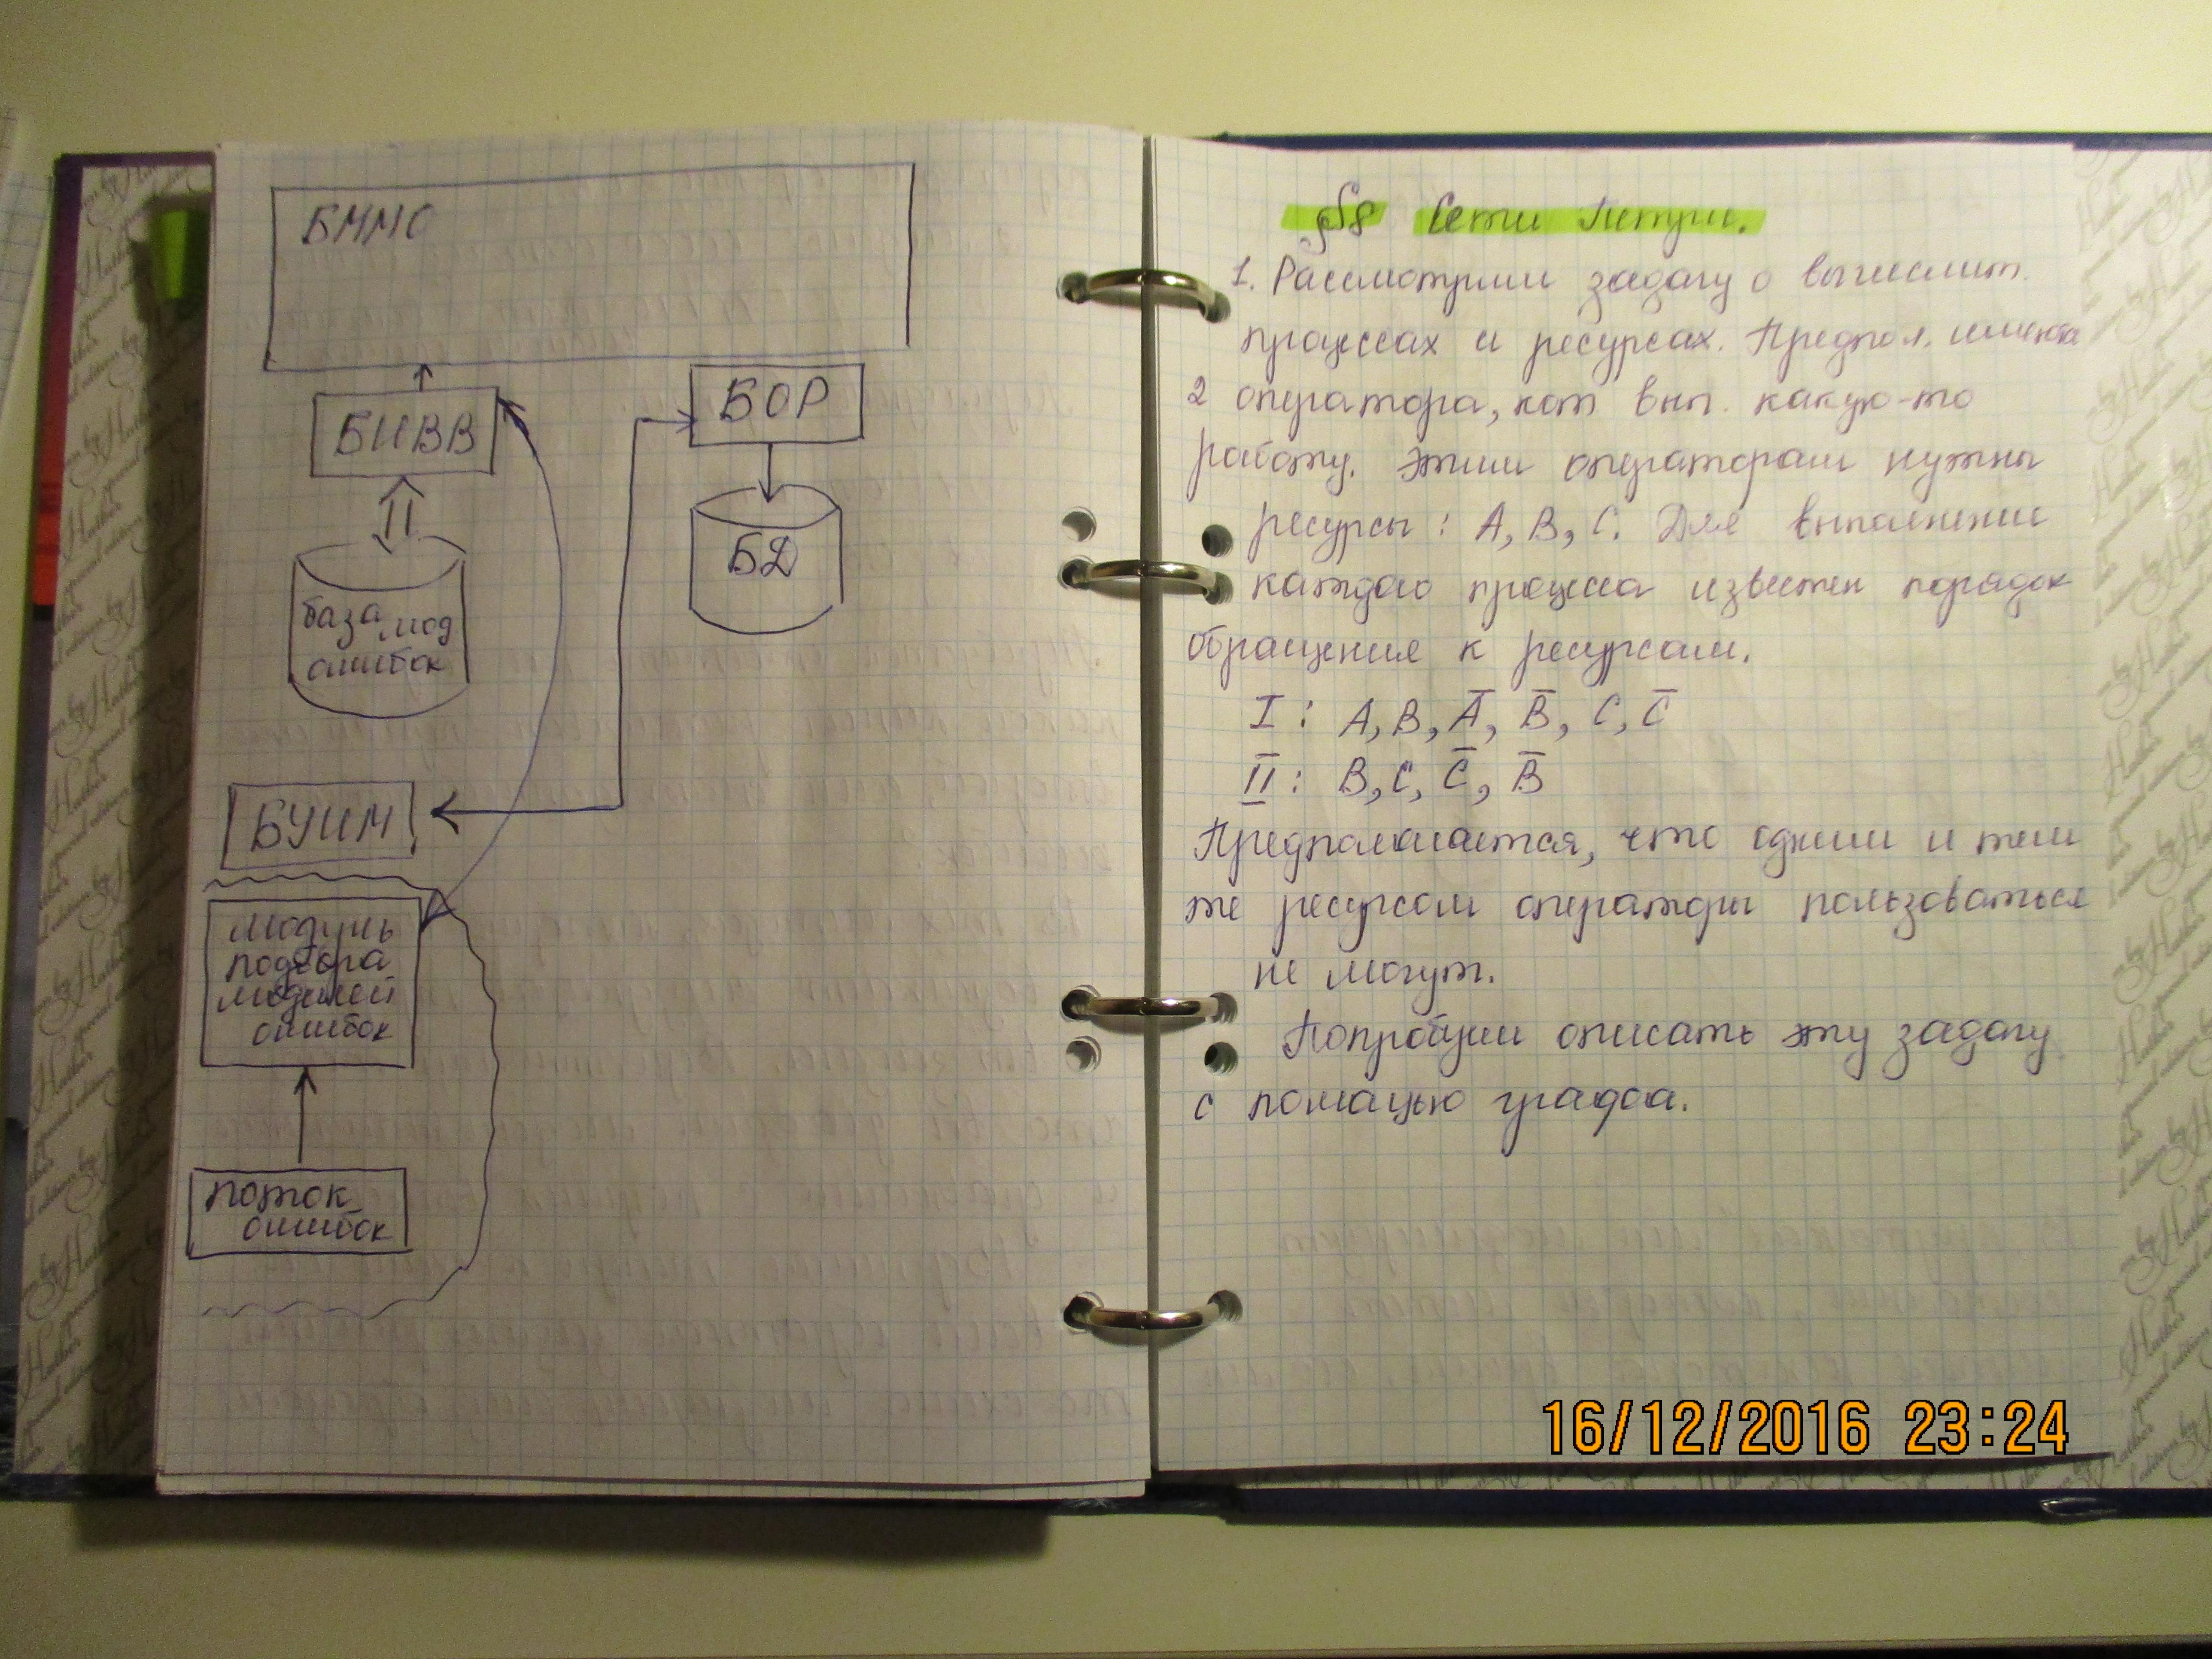 БММС
БИВВ
БОР
база мод
ошибок
БД
БУИМ
модуль
подбора
моделей
ошибок
поток
ошибок
§8 Сети Петри.
1. Рассмотрим задачу о вычислит.
процессах и ресурсах. Предпол. имеются
2 оператора, кот вып. какую-то
работу. Этим операторам нужны
ресурсы: А, В, С. Для выполнения
каждого процесса известен порядок
обращения к ресурсам.
I: A, B, A̅, B̅, C, C̅
II: B, C, C̅, B̅
Предполагается, что одним и тем
же ресурсом операторы пользоваться
не могут.
Попробуем описать эту задачу
с помощью графа.
16/12/2016 23:24